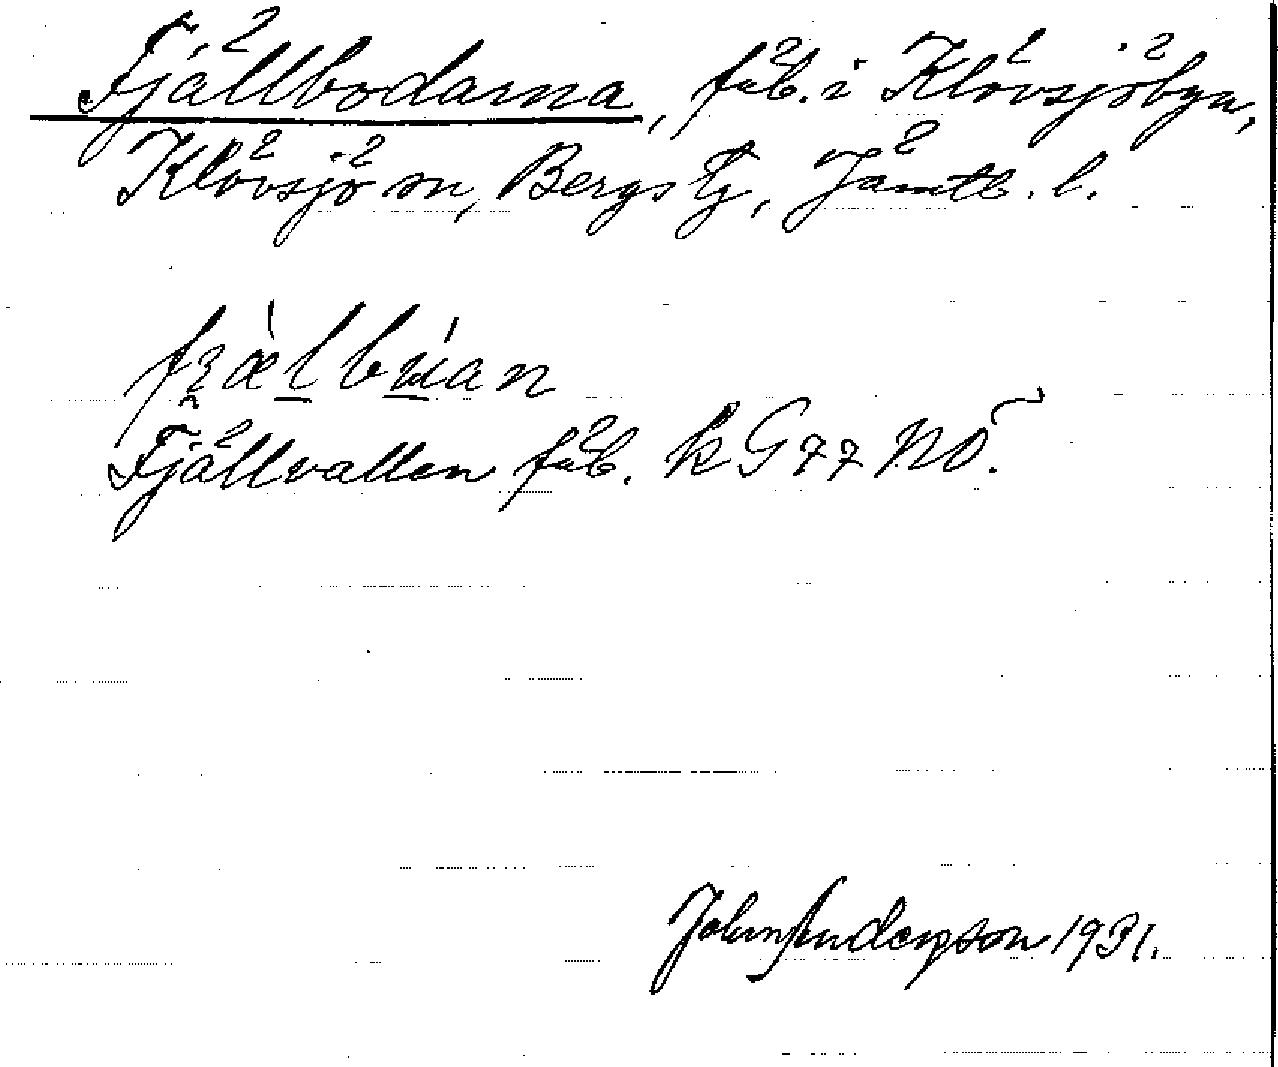 Fjällbodarna, fäb. i Klövsjöbyn,
Klövsjö sn, Bergs tg, Jämtl. l.
Fjällvallen fäb. k G77 NO.
John Anderson 1931.